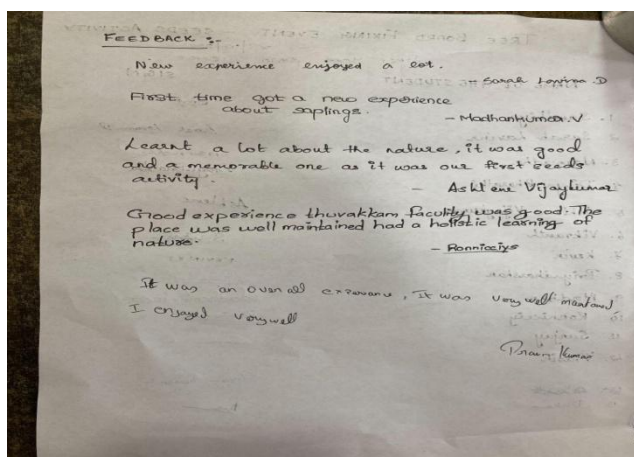 FEEDBACK :-
New experience enjoyed a lot.
- Sarah D
First time got a new experience
about saplings.
- Madhankumar.V
Learnt a lot about the nature, it was good
and a memorable one as it was our first seeds
activity.
- Ashlene Vijaykumar
Good experience thuvakkam faculity was good. The
place was well maintained had a holistic learning of
nature.
-
It was an over all , It was very well
I enjoyed very well
Kumar